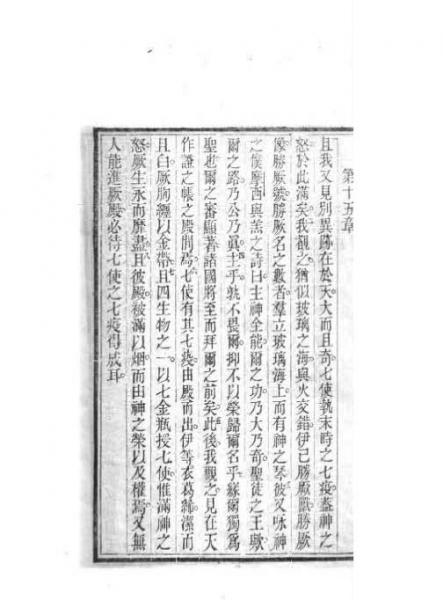 第十五章
且我又見別異跡在於天大而且奇七使執末時之七疫蓋神之
怒於此滿矣我觀之猶似玻璃之海與火交錯伊已勝厥獸勝厥
像勝厥號勝厥名之數者羣立玻璃海上而有神之琴彼又咏神
之僕摩西與羔之詩曰主神全能爾之功乃大乃奇聖徒之王歟
爾之路乃公乃真主乎孰不畏爾抑不以榮歸爾名乎緣爾獨為
聖也爾之審顯著諸國將至而拜爾之前矣此後我觀之見在天
作證之帳之殿開焉七使有其七疫由殿而出伊等衣葛絲潔而
且白厥胸纏以金帶且四生物之一以七金瓶授七使惟滿神之
怒厥生永而靡盡且彼殿被滿以烟而由神之榮以及權焉又無
人能進厥殿必待七使之七疫得成耳